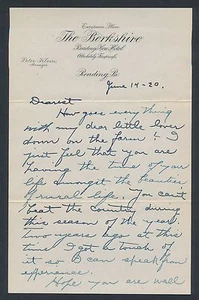 European Plan
The Berkshire
Reading's New Hotel
Absolutely Fireproof
Manager
Reading, Pa.
June 14-20.
Dearest
How goes everything
with my dear little love
down on the farm? I
just feel that you are
having the time of your
life amongst the beauties
of rural life. You can't
beat the country during
this season of the year.
Two years ago at this
time I got a touch of
it so I can speak from
experience.
Hope you are well